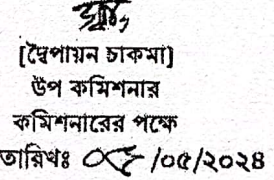 [দ্বৈপায়ন চাকমা]
উপ কমিশনার
কমিশনারের পক্ষে
তারিখঃ /০৫/২০২৪